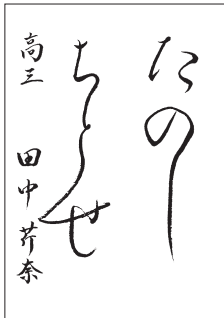 たのし
ちとせ
高三 田中芹奈